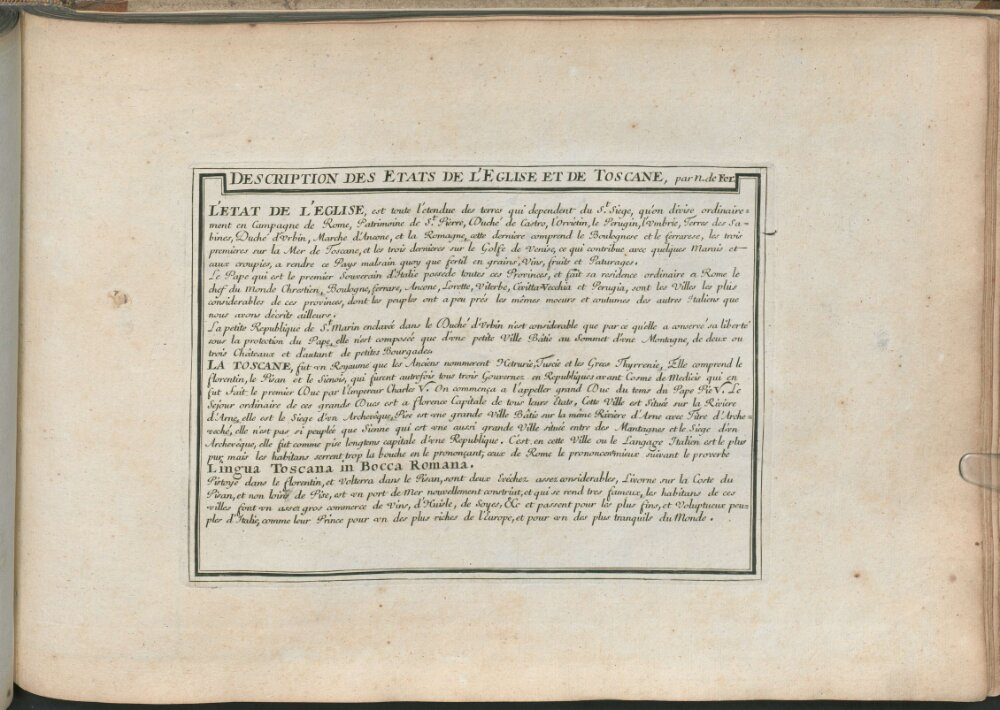 DESCRIPTION DES ETATS DE L'EGLISE ET DE TOSCANE, par n. de Fer.
L'ETAT DE L'EGLISE, est toute l'etendue des terres qui dependent du S.t Siege, qu'on divise ordinaire-
ment en Campagne de Rome, Patrimoine de S.t Pierre, Duché de Castro, l'Orvietin, le Perugin, l'vmbrie, Terres des Sa-
bines, Duché d'Vrbin, Marche d'Ancone, et la Romagne, cette derniere comprend le Boulognese et le ferrarese, les trois
premieres sur la Mer de Toscane, et les trois dernieres sur le Golfe de Venise, ce qui contribue avec quelques Marais et
eaux croupies, a rendre ce Pays malsain quoy que fertil en grains, Vins, fruits et Paturages.
Le Pape qui est le premier Souverain d'Italie possede toutes ces Provinces, et fait sa residence ordinaire a Rome le
chef du Monde Chrestien, Boulogne, ferrare, Ancone, Lorette, Viterbe, Civitta-Vecchia et Perugia, sont les Villes les plus
considerables de ces provinces, dont les peuples ont a peu prés les mêmes moeurs et coutumes des autres Italiens que
nous avons décrits ailleurs.
La petite Republique de S.t Marin enclavée dans le Duché d'Vrbin n'est considerable que par ce qu'elle a conservé sa liberté
sous la protection du Pape, elle n'est composée que d'vne petite Ville Bâtie au Sommet d'vne Montagne, de deux ou
trois Châteaux et d'autant de petits Bourgades.
LA TOSCANE, fut vn Royaume que les Anciens nommerent Hetrurie, Tuscie et les Grecs Thyrrenie, Elle comprend le
florentin, le Pisan et le Sienois, qui furent autrefois tous trois Gouvernez en Republiques avant Cosme de Medicis qui en
fut Fait le premier Duc par l'Empereur Charles V. On commença a l'appeller grand Duc du tems du Pape Pie V. Le
Sejour ordinaire de ces grands Ducs est a florence Capitale de tous leurs Etats, Cette Ville est Située sur la Riviere
d'Arne, elle est le Siege d'vn Archevêque, Pise est vne grande Ville Bâtie sur la même Riviere d'Arne avec Titre d'Arche-
veché, elle n'est pas si peuplée que Sienne qui est vne aussi grande Ville située entre des Montagnes et le Siege d'vn
Archevêque, elle fut comme pise longtems capitale d'vne Republique. C'est en cette Ville ou le Langage Italien est le plus
pur, mais les habitans serrent trop la bouche en le prononçant, ceux de Rome le prononcent mieux suivant le proverbe
Lingua Toscana in Bocca Romana.
Pistoye dans le florentin, et Volterra dans le Pisan, sont deux Evéchez assez considerables, Livorne sur la Coste du
Pisan, et non loing de Pise, est vn port de Mer nouvellement construit, et qui se rend tres fameux, les habitans de ces
villes font vn assez gros commerce de Vins, d'Huisle, de Soyes, &c et passent pour les plus fins, et Voluptueux peu-
ples d'Italie, comme leur Prince pour vn des plus riches de l'Europe, et pour vn des plus tranquils du Monde.